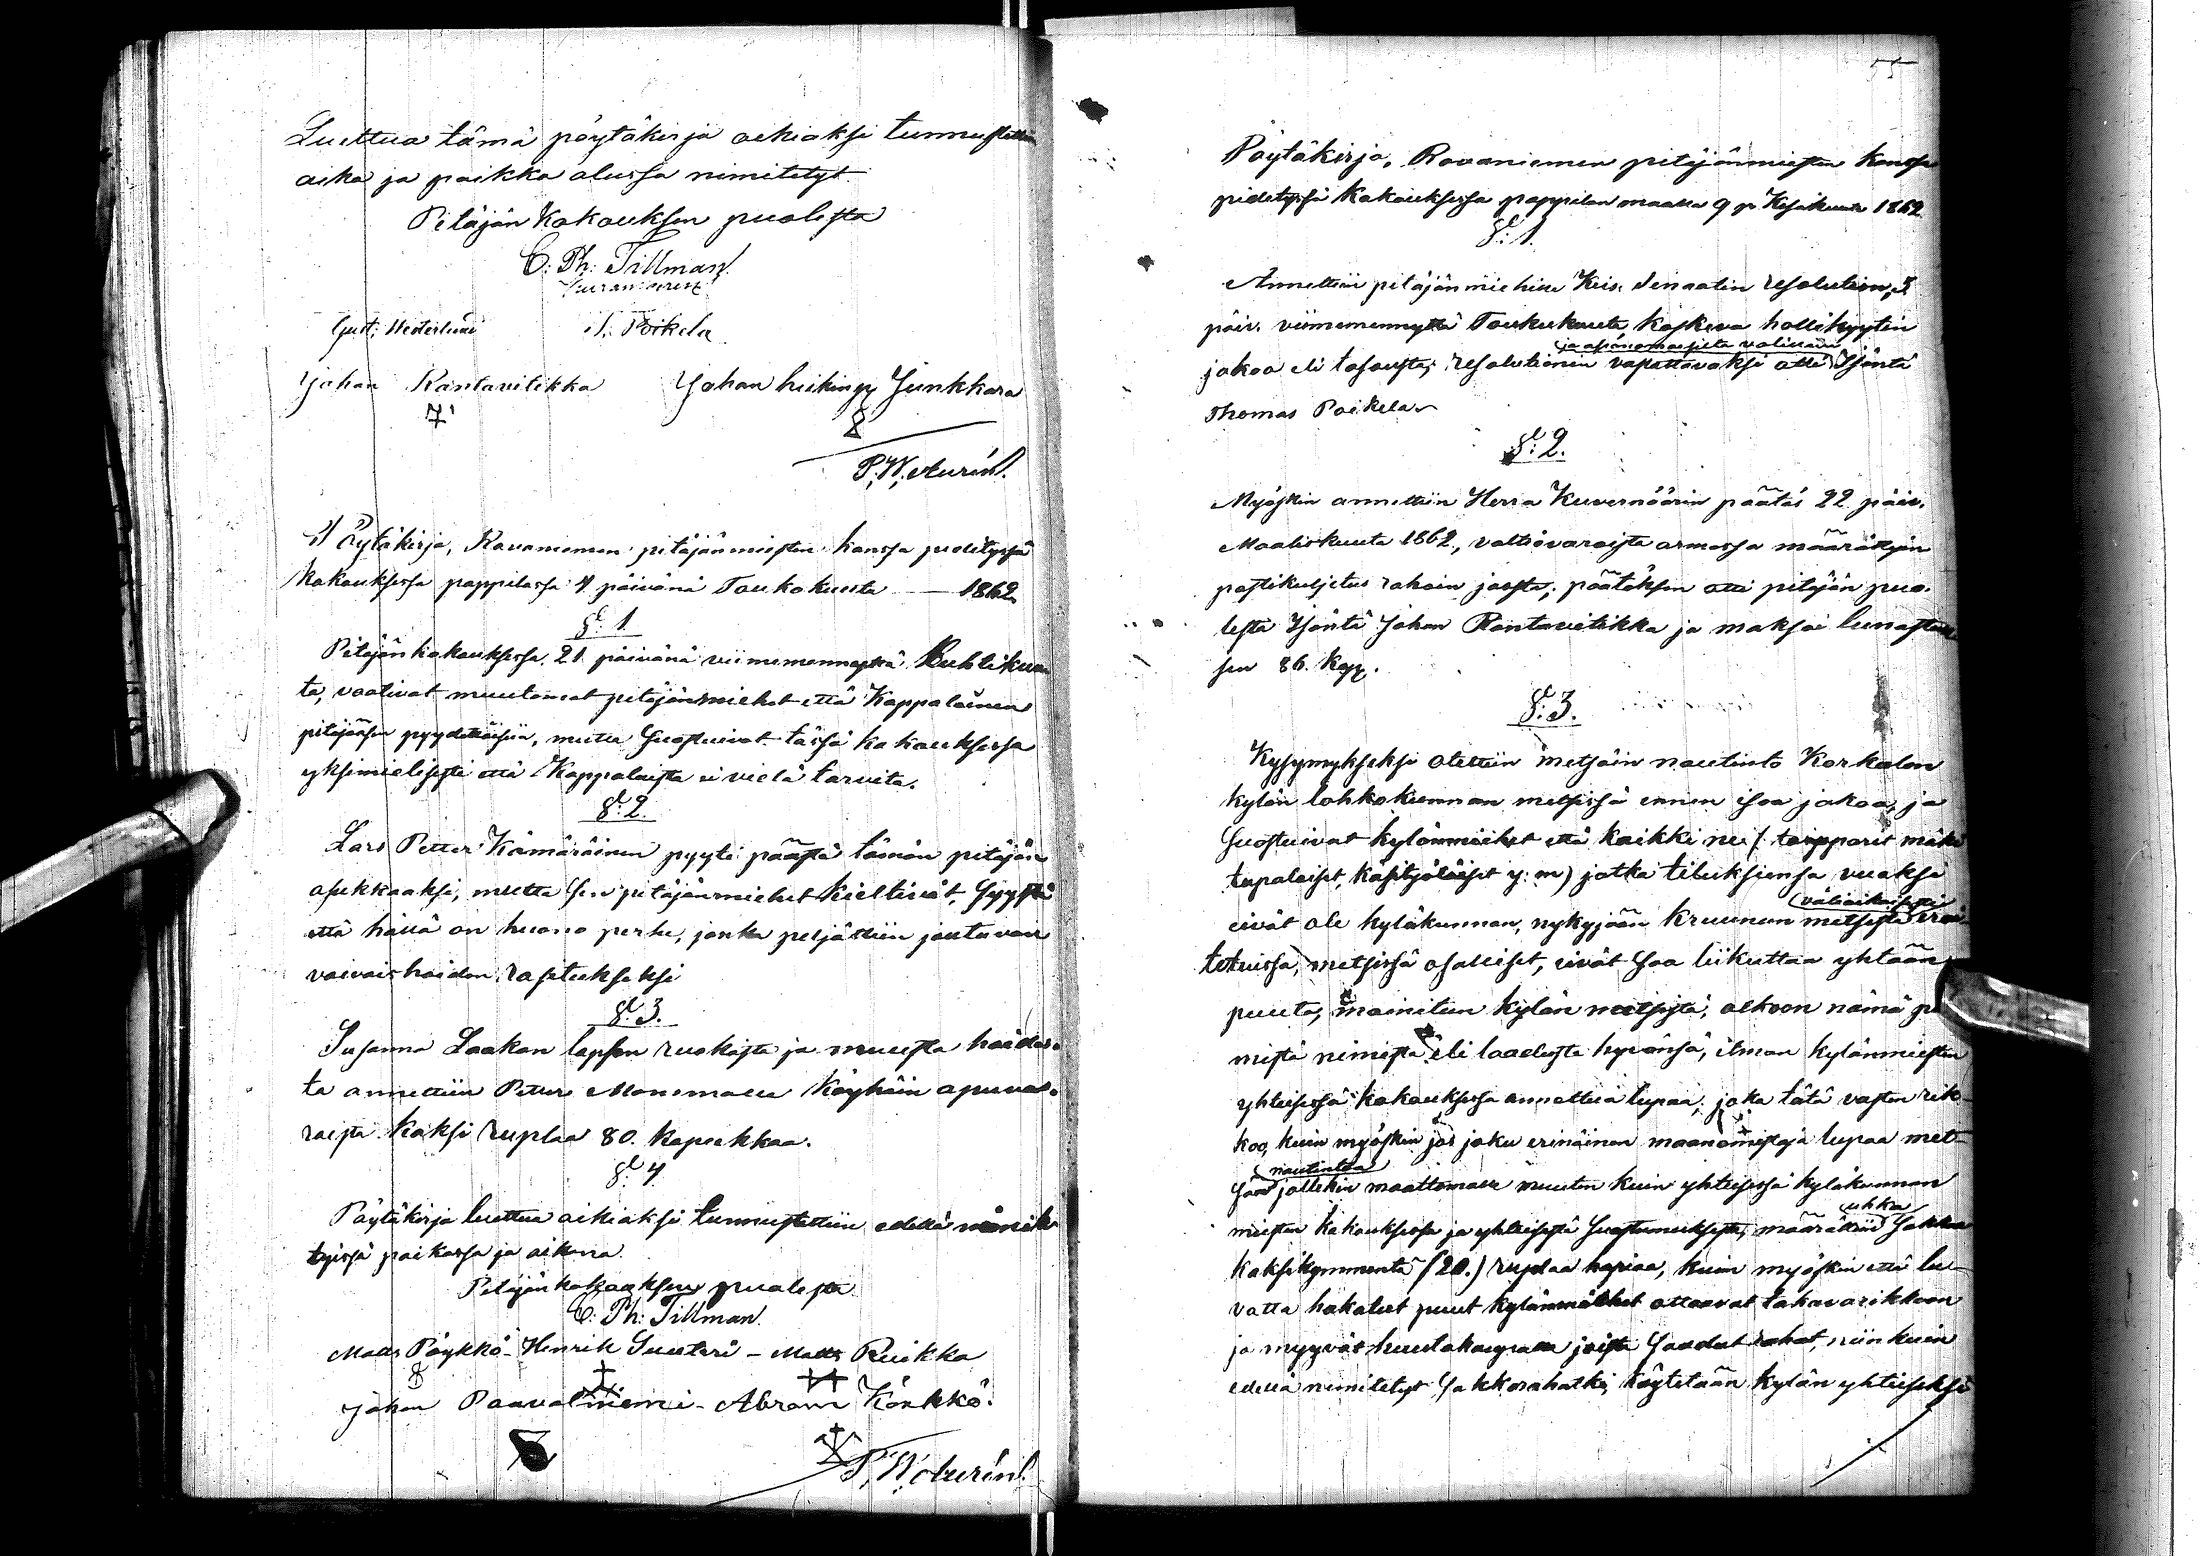 Luettua tämä pöytäkirja oikiaksi tunnustettu
aika ja paikka alussa nimitetyt
Pitäjän Kokouksen puolesta
C: Ph: Tillman
Gust: Westerlund J. Poikela
Johan Rantavitikka Johan heikinp Junkkara
P. W. Aurén.
Pöytäkirja, Rovaniemen pitäjänmiesten kanssa pidetyssä
Kokouksessa pappilassa 4 päivänä Toukokuuta — 1862
§: 1
Pitäjänkokouksessa 21 päivänä viimemennyttä Huhtikuu
ta, vaativat muutamat pitäjänmiehet että Kappalainen
pitäjääsen pyydettäisiin, mutta Suostuivat tässä kokouksessa
yksimielisesti että Kappalaista ei vielä tarvita.
§: 2.
Lars Petter Kämäräinen pyyti päästä tämän pitäjän
asukkaaksi, mutta sen pitäjänmiehet kieltivät, Syystä
että hällä on huono perhe, jonka peljättiin joutuvan
vaivaishoidon rasiteukseksi
§: 3.
Susanna Laakon lapsen ruokosta ja muusta hoidos-
ta annettiin Petter Monsmalle Köyhäin apuva-
roista kaksi ruplaa 80. kopeekkaa.
§: 4
Pöytäkirja luettua oikiaksi tunnustettiin edellä nimite
tyissä paikassa ja aikana.
Pitäjänkokouksen puolesta
C: Ph: Tillman
Matts Pöykkö - Henrik Suutari - Matts Ruikka
Johan Paavalniemi - Abram Könkkö.
P. W. Aurén.
55
Pöytäkirja, Rovaniemen pitäjänmiesten kanssa
pidetyssä Kokouksessa pappilan maalla 9 p Kesäkuuta 1862
§: 1.
Annettiin pitäjänmiehille Keis. Senaatin resolution, 5
päiv. viimemennyttä Toukokuuta koskeva hollikyytin
ja asianomaisilta valittaa
jakoa eli tasausta; resolutionin vapattavaksi otti Isäntä
Thomas Poikela
§: 2.
Myöskin annettiin Herra Kuvernöörin päätös 22 päiv.
Maaliskuuta 1862, valtiovaroista armossa määrättyin
postikuljetus rahain jaosta; päätöksen otti pitäjän puo-
lesta Isäntä Johan Rantavitikka ja maksoi lunastuk
sen 86. kop.
§: 3.
Kysymykseksi otettiin metsäin nautinto Korkalon
kylän lohkokunnan metsissä ennen isoa jakoa, ja
Suostuivat kylänmiehet että kaikki ne /: torpparit mäki
tupalaiset, käsityöläiset y: m) jotka tiluksiensa vuoksi
väliaikaisesti
eivät ole kyläkunnan, nykyjään kruunun metsistä eroi
tetuissa, metsissä osalliset, eivät saa liikuttaa yhtään
puuta, mainitun kylän metsistä, olkoon nämä pu
mistä nimestä eli laadusta hyvänsä, ilman kylänmiesten
yhteisessä kokouksessa annettua lupaa; joka tätä vasten rik-
koo, kuin myöskin jos joku erinäinen maanomistaja lupaa met-
nautintoa
sän jollekin maattomalle muuten kuin yhteisessä kyläkunnan
uhka
miesten kokouksessa ja yhteisestä Suostumuksesta, määrättiin Sakko
kaksikymmentä (20.) ruplaa hopiaa, kuin myöskin että lu-
vatta hakatut puut kylänmiehet ottaavat takavarikkoon
ja myyvät huutokaupalla joista Saadut rahat, niinkuin
edellä nimitetyt Sakkorahatki, käytetään kylän yhteiseksi